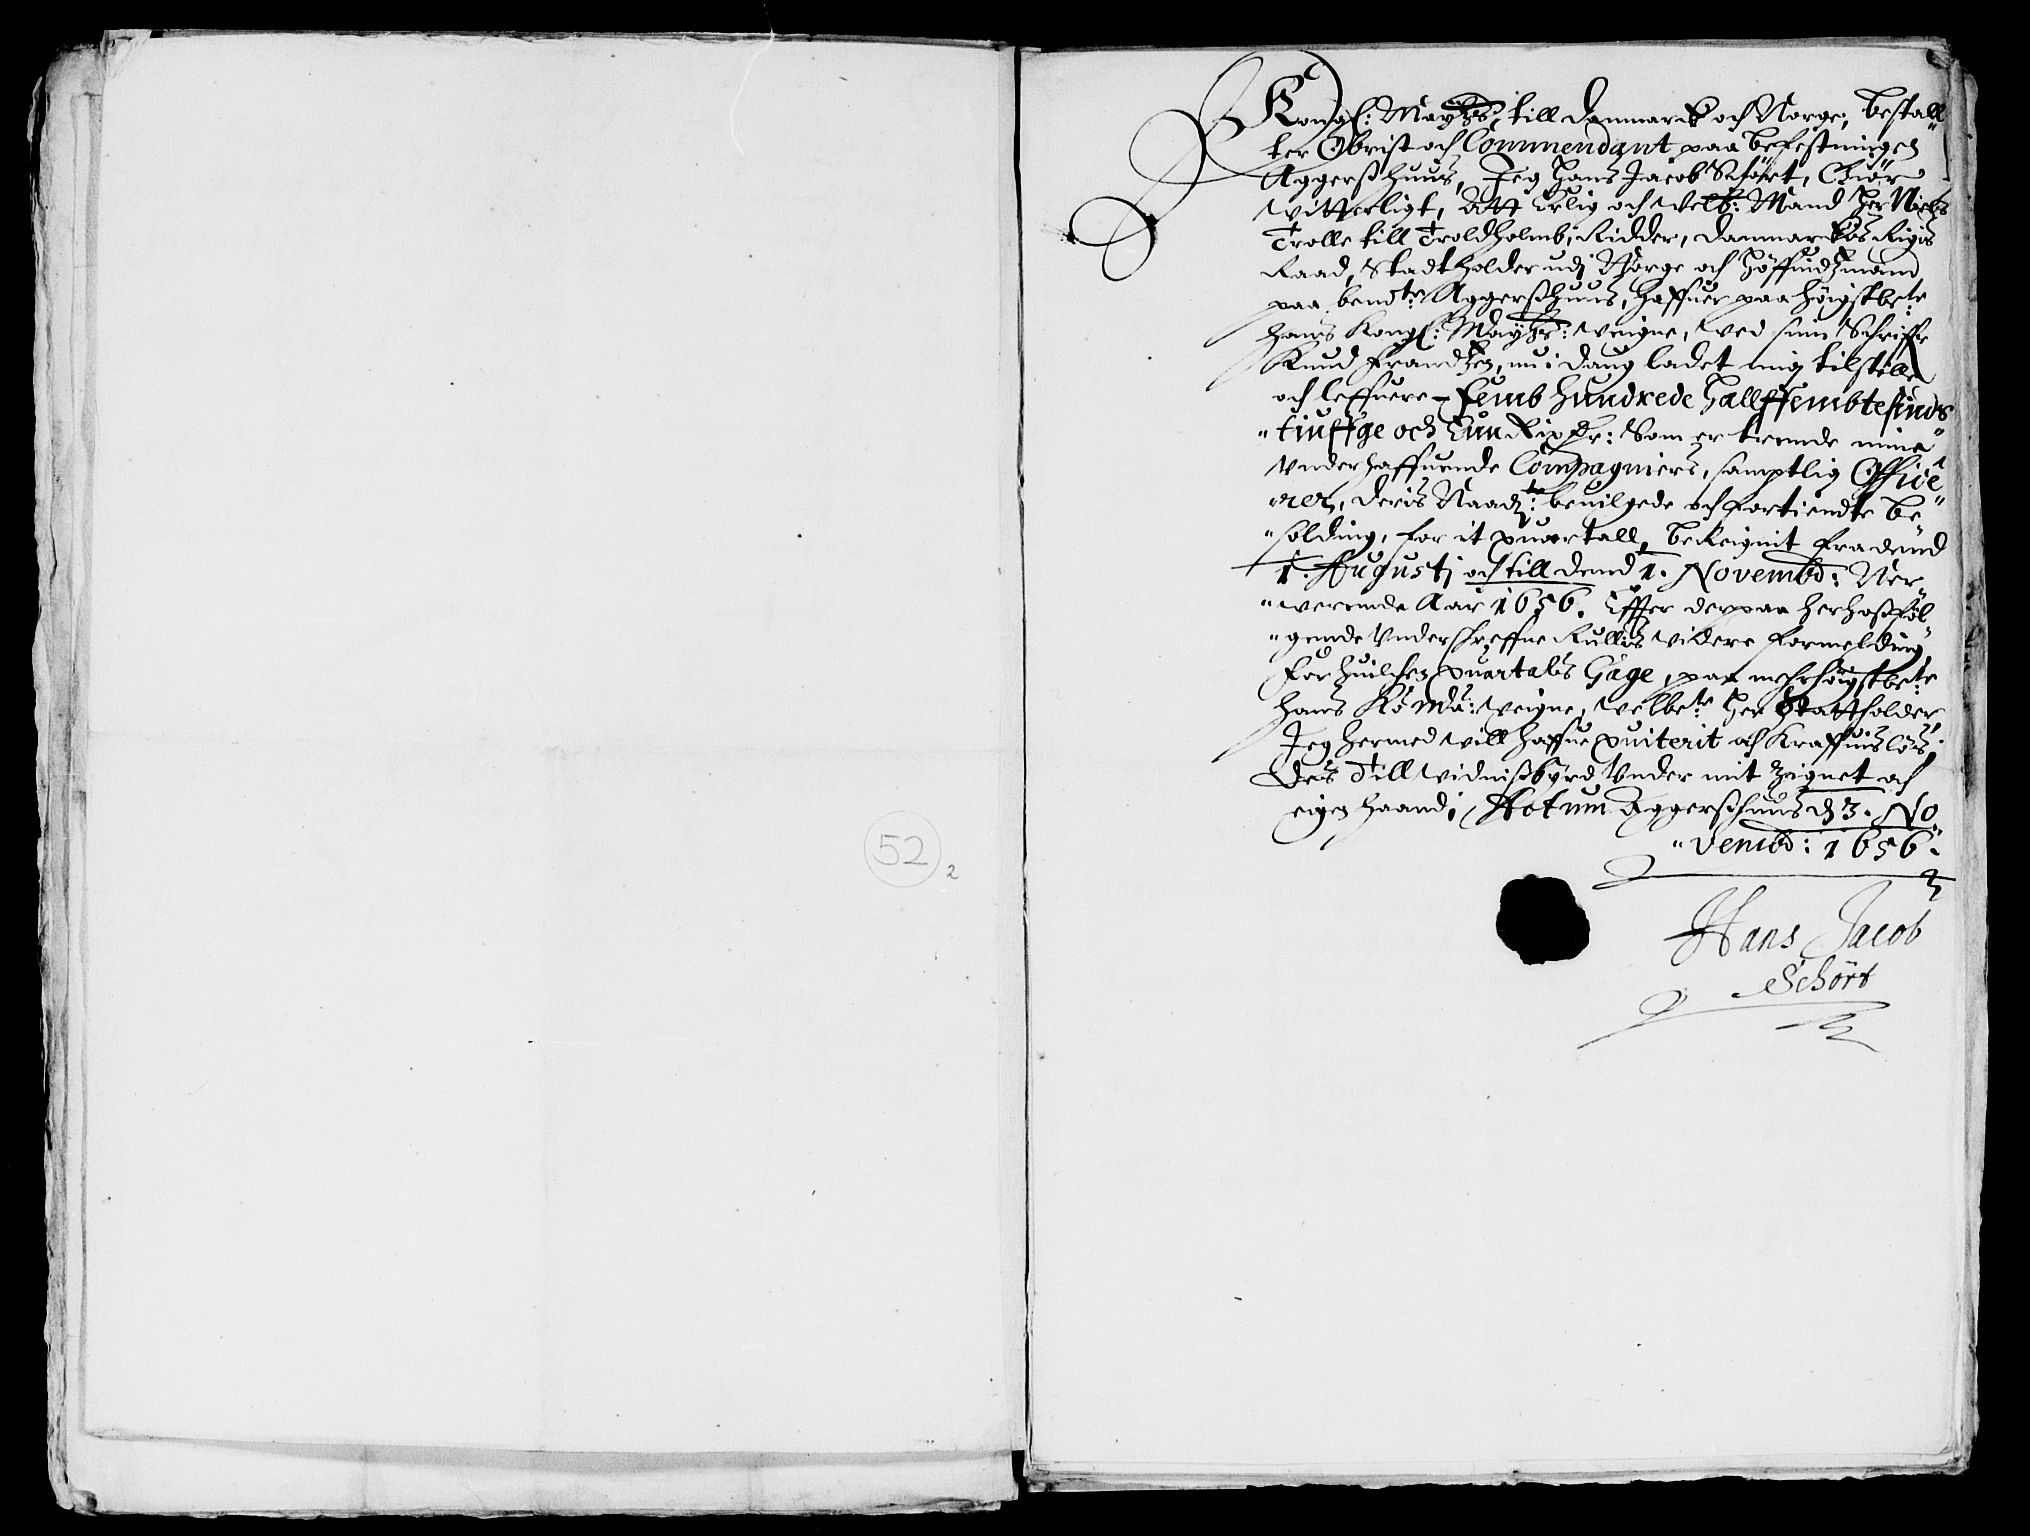 52
2
Kongl: Maytz, till Danmarck och Norge, bestall„
ter Obrist och Commendant paa befestningen
Aggerßhuus, Jeg Hans Jacob Schört, Giör
witterligt, Att Erlig och Welb: Mand Her Niels
Trolle till Troldholmb, Ridder, Danmarckis Rigis
Raad, Stadtholder udj Norge och Höffuidzmand
paa bemdte Aggerßhuus, haffuer paa höigstbete
hans Kongl: Maytz: veigne, ved sinn Schriffr
Knud Frandtzen, nu i daug ladet mig tilstelle
och leffuere - Femb Hundrede Hallffembtesinds
„tiuffge och Een Rixdr: Som er trende mine
Underhaffuende Compagniers, samptlig Office„
„rer, deris Naadte: beuilgede och fortiendte be„
„solding, for it quartall, bereignit fra dend
1. Augustj och till dend 1. Novembd: Ner„
„werende Aar 1656. Effter derpaa herhoßföl„
„gende Underschreffne Rullis videre formelding,
For huilchen quartals Gage, paa mehrhöigstbete
hans Ko Ma: veigne, welbete Her Stattholder
Jeg hermed will haffue quiterit och Kraffuislöß,
Des Till Vidnißbyrd Under mit Zignet och
eigen haand; Actum Aggerßhuus d 3. No„
„vembd: 1656.
Hans Jacob
Schört